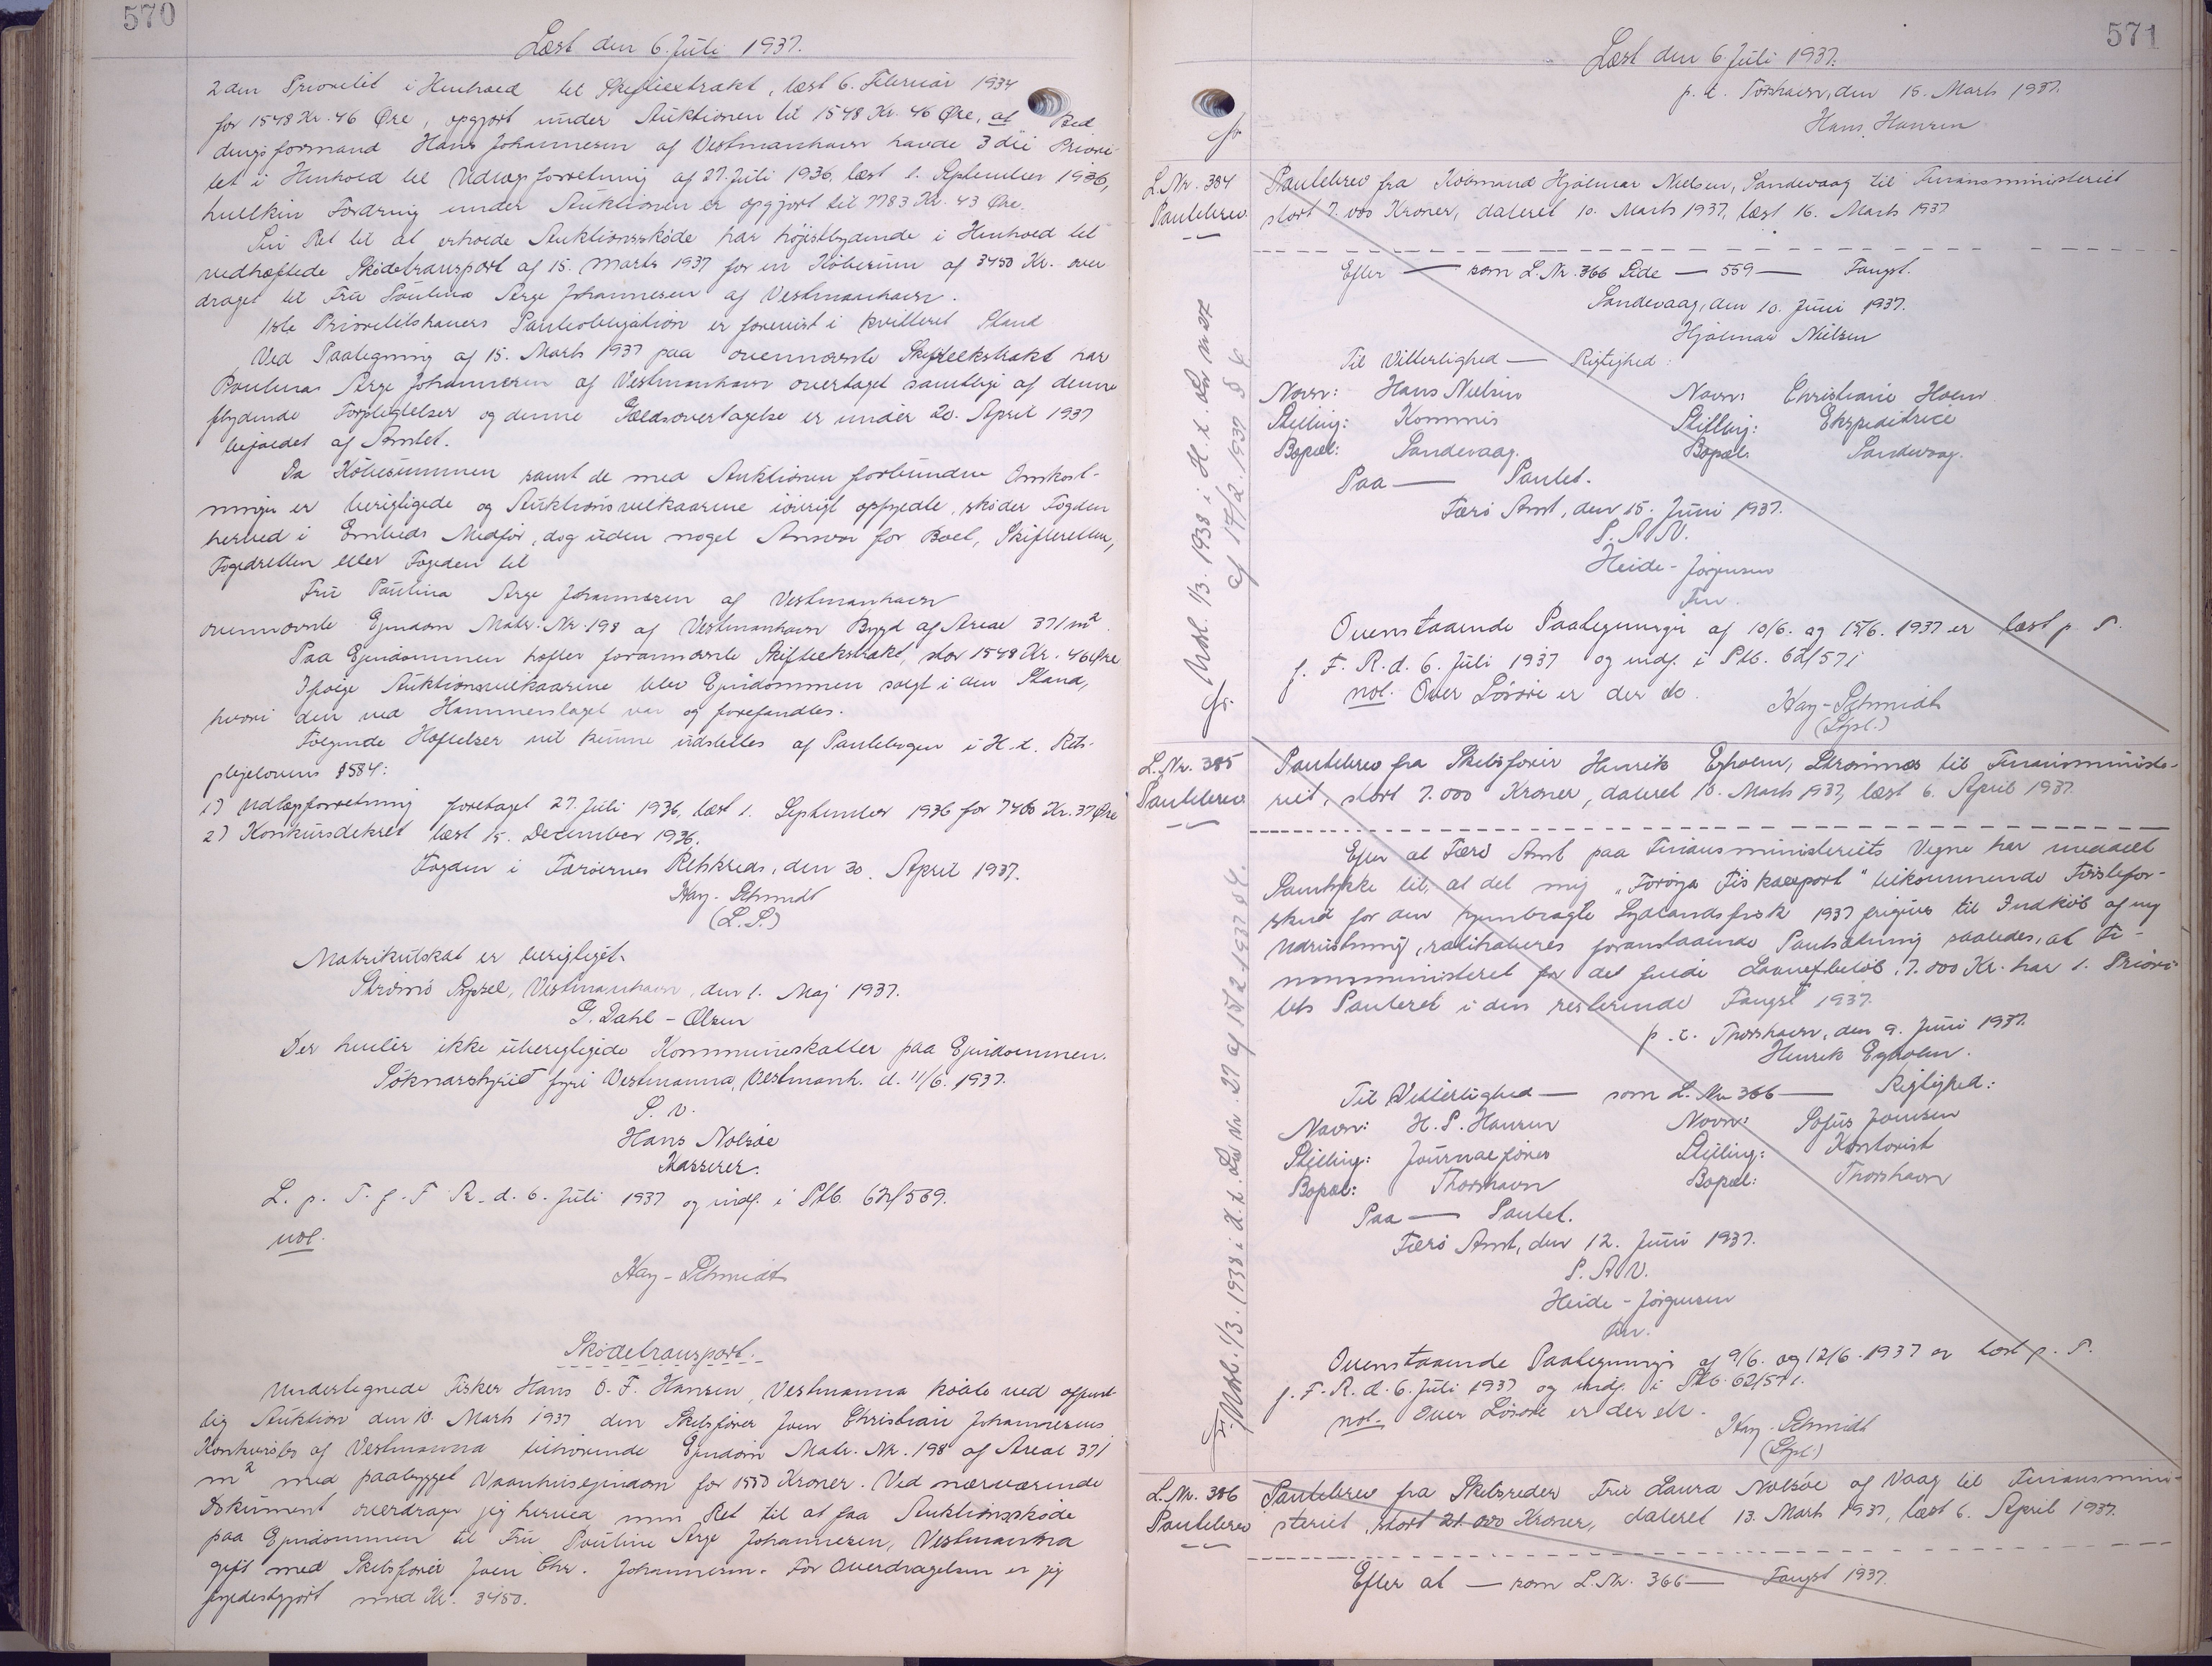 570
Læst den 6. Juli 1937.
2den Prioritet i Henhold til Skifteekstrakt, læst 6. Februar 1934
for 1548 Kr. 46 Øre, opgjort under Auktionen til 1548 Kr. 46 Øre, at Bed
dingsformand Hans Johannesen af Vestmanhavn havde 3die Priori-
tet i Henhold til Udlægsforretning af 27. Juli 1936, læst 1. September 1936,
hvilken Fordring under Auktionen er opgjort til 7783 Kr. 43 Øre.
Sin Ret til at erholde Auktionsskøde har højestbydende i Henhold til
vedhæftede Skødetransport af 15. Marts 1937 for en Købesum af 3450 Kr. over
draget til Fru Poulina Arge Johannesen af Vestmanhavn.
1ste Prioritetshavers Panteobligation er forevist i kvitteret Stand
Ved Paategning af 15. Marts 1937 paa ovennævnte Skifteekstrakt har
Poulina Arge Johannesen af Vestmanhavn overtaget samtlige af denne
flydende Forpligtelser og denne Gældsovertagelse er under 20. April 1937
bifaldet af Amtet.
Da Købesummen samt de med Auktionen forbundne Omkost-
ninger er berigtigede og Auktionsvilkaarene iøvrigt opfyldte, skøder Fogden
herved i Embeds Medfør, dog uden noget Ansvar for Boet, Skifteretten,
Fogedretten eller Fogden til
Fru Paulina Arge Johannesen af Vestmanhavn
ovennævnte Ejendom Matr. Nr. 198 af Vestmanhavn Bygd af Areal 371 m².
Paa Ejendommen hæfter forannævnte Skifteekstrakt, stor 1548 Kr. 46 Øre
Ifølge Auktionsvilkaarene blev Ejendommen solgt i den Stand,
hvori den ved Hammerslaget var og forefandtes.
Følgende Hæftelser vil kunne udslettes af Pantebogen i H. t. Rets-
plejelovens § 584:
1) Udlægsforretning foretaget 27. Juli 1936, læst 1. September 1936 for 7460 Kr. 37 Øre
2) Konkursdekret læst 15. December 1936.
Fogden i Færøernes Retskreds, den 30. April 1937.
Kay-Schmidt
(L.S.)
Matrikulskat er berigtiget.
Strømø Syssel, Vestmanhavn, den 1. Maj 1937.
G. Dahl-Olsen
Der hviler ikke uberigtigede Kommuneskatter paa Ejendommen.
Sóknarstýrið fyri Vestmanna, Vestmanh. d. 11/6. 1937.
S. v.
Hans Nolsøe
Kasserer.
L. p. T. f. F. R. d. 6. Juli 1937 og indf. i Ptb. 62/569.
not.
Kay-Schmidt
Skødetransport.
Undertegnede Fisker Hans D. F. Hansen, Vestmanna købte ved offent-
lig Auktion den 10. Marts 1937 den Skibsfører Joen Christian Johannesens
Konkursbo af Vestmanna tilhørende Ejendom Matr. Nr. 198 af Areal 371
m² med paabygget Vaanhusejendom for 1550 Kroner. Ved nærværende
Dokument overdrager jeg herved min Ret til at faa Auktionsskøde
paa Ejendommen til Fru Pouline Arge Johannesen, Vestmanna
gift med Skibsfører Joen Chr. Johannesen. For Overdragelsen er jeg
fyldestgjort med Kr. 3450.
571
Læst den 6. Juli 1937.
p. t. Torshavn, den 15. Marts 1937.
Hans Hansen
L. Nr. 384
Pantebrev
Pantebrev fra Købmand Hjalmar Nielsen, Sandevaag til Finansministeriet
stort 7.000 Kroner, dateret 10. Marts 1937, læst 16. Marts 1937
Efter — som L. Nr. 366 Side — 559 — Fangst.
Sandevaag, den 10. Juni 1937.
Hjalmar Nielsen
Til Vitterlighed — Rigtighed:
Navn: Hans Nielsen Navn: Christiane Holm
Stilling: Kommis Stilling: Ekspeditrice
Bopæl: Sandevaag. Bopæl: Sandevaag.
Paa — Pantet.
Færø Amt, den 15. Juni 1937.
P. A. V.
Heide-Jørgensen
Fm.
Ovenstaaende Paategninger af 10/6. og 15/6. 1937 er læst p. T.
f. F. R. d. 6. Juli 1937 og indf. i Ptb. 62/571
not. Over Løsøre er der do.
Kay-Schmidt
(Sysl.)
Udsl. 1/3. 1938 i H. t. Lov nr. 27
af 17/2. 1937 § 4.
L. Nr. 385
Pantebrev
Pantebrev fra Skibsfører Henrik Egholm, Strømnæs til Finansministe-
riet, stort 7.000 Kroner, dateret 10. Marts 1937, læst 6. April 1937.
Efter at Færø Amt paa Finansministeriets Vegne har meddelt
Samtykke til, at det mig "Føroya Fiskaexport" tilkommende Førstefor-
skud for den hjembragte Sydlandsfisk 1937 frigives til Indkøb af ny
Udrustning, ratihaberes foranstaaende Pantsætning saaledes, at Fi-
nansministeriet for det fulde Laanefbeløb 7.000 Kr. har 1. Priori-
tets Panteret i den resterende Fangst 1937.
p. t. Thorshavn, den 9. Juni 1937.
Henrik Egholm.
Til Vitterlighed — som L. Nr. 366 — Rigtighed:
Navn: H. P. Hansen Navn: Sofus Joensen
Stilling: Journalfører Stilling: Kontorist
Bopæl: Thorshavn Bopæl: Thorshavn
Paa — Pantet.
Færø Amt, den 12. Juni 1937.
P. A. V.
Heide-Jørgensen
Fm.
Ovenstaaende Paategninger af 9/6. og 12/6. 1937 er læst p. T.
f. F. R. d. 6. Juli 1937 og indf. i Ptb. 62/571.
not. Over Løsøre er der do.
Kay-Schmidt
(Sysl.)
Udsl. 1/3. 1938 i H. t. Lov Nr. 27 af 15/2. 1937 § 4.
L. Nr. 386
Pantebrev
Pantebrev fra Skibsreder Fru Laura Nolsøe af Vaag til Finansmini-
steriet, stort 21.000 Kroner, dateret 13. Marts 1937, læst 6. April 1937.
Efter at — som L. Nr. 366 — Fangst 1937.